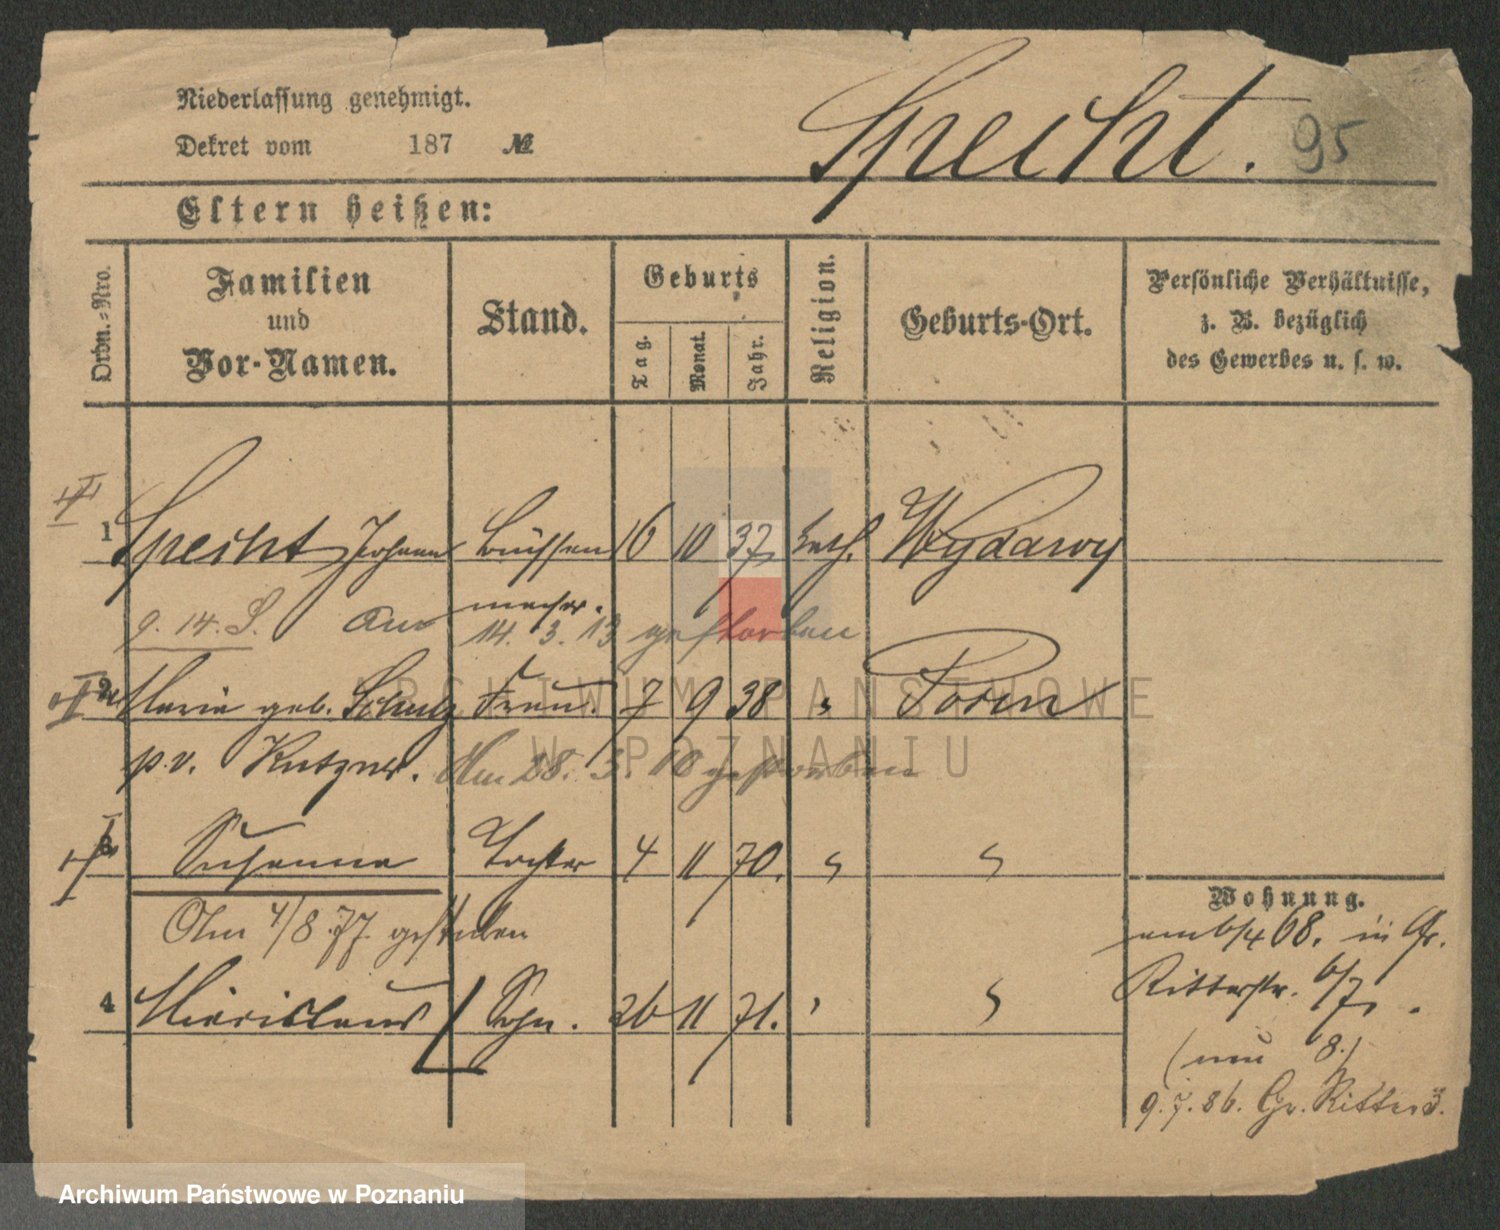 Niederlassung genehmigt.
Dekret vom 187 №
Specht. 95
Eltern heißen:
Ordn.-Nro.
Familien
und
Vor-Namen.
Stand.
Geburts
Tag.
Monat.
Jahr.
Religion.
Geburts-Ort.
Persönliche Verhältnisse,
z. B. bezüglich
des Gewerbes u. s. w.
1 Specht Johann Büchsen 16 10 37, kath. Wydawy
macher.
9. 14. S. Am 14. 3. 13 gestorben
2 Maria geb. Schulz Frau. 7 9 38 " Posen
p.v. Kutzner. Am 28. 3. 10 gestorben
3 Susanna Tochter 4 11 70. " "
Am 4/8 77 gestorben
4 Miecislaus Sohn. 26 11 71. " "
Wohnung.
68. in Gr.
Ritterstr. 6/7.
(neu 8.)
9.7.86. Gr. Ritterst.
ARCHIWUM PAŃSTWOWE
W POZNANIU
Archiwum Państwowe w Poznaniu